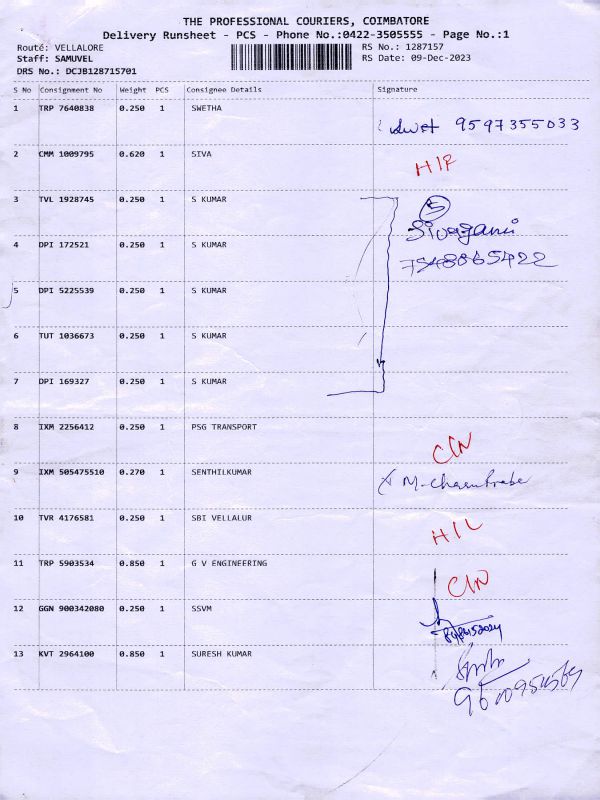 THE PROFESSIONAL COURIERS, COIMBATORE
Delivery Runsheet - PCS - Phone No.:0422-3505555 - Page No.:1
Route: VELLALORE RS No.: 1287157
Staff: SAMUVEL RS Date: 09-Dec-2023
DRS No.: DCJB128715701
S No Consignment No Weight PCS Consignee Details Signature
1 TRP 7640838 0.250 1 SWETHA
9597355033
2 CMM 1009795 0.620 1 SIVA
3 TVL 1928745 0.250 1 S KUMAR
5
Sivagami
4 DPI 172521 0.250 1 S KUMAR
7548065422
5 DPI 5225539 0.250 1 S KUMAR
6 TUT 1036673 0.250 1 S KUMAR
7 DPI 169327 0.250 1 S KUMAR
8 IXM 2256412 0.250 1 PSG TRANSPORT
9 IXM 505475510 0.270 1 SENTHILKUMAR
10 TVR 4176581 0.250 1 SBI VELLALUR
11 TRP 5903534 0.850 1 G V ENGINEERING
12 GGN 900342080 0.250 1 SSVM
13 KVT 2964100 0.850 1 SURESH KUMAR